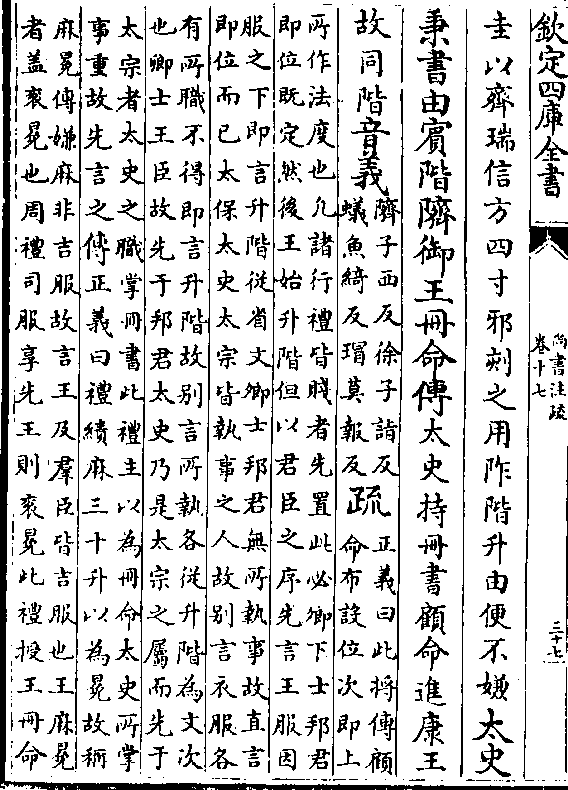 欽定四庫全書
尚書注疏
卷十七
二十七
圭以齊瑞信方四寸邪刻之用阼階升由便不嫌太史
秉書由賓階隮御王冊命傳太史持冊書顧命進康王
故同階音義
隮子西反徐子詣反
蟻魚綺反瑁莫報反
疏
正義曰此將傳顧
命布設位次即上
所作法度也凡諸行禮皆賤者先置此必卿下士邦君
即位既定然後王始升階但以君臣之序先言王服因
服之下即言升階從省文卿士邦君無所執事故直言
即位而已太保太史太宗皆執事之人故别言衣服各
有所職不得即言升階故别言所執各從升階為文次
也卿士王臣故先于邦君太史乃是太宗之屬而先于
太宗者太史之職掌冊書此禮主以為冊命太史所掌
事重故先言之傳正義曰禮績麻三十升以為冕故稱
麻冕傳嫌麻非吉服故言王及羣臣皆吉服也王麻冕
者盖衮冕也周禮司服享先王則衮冕此禮授王冊命